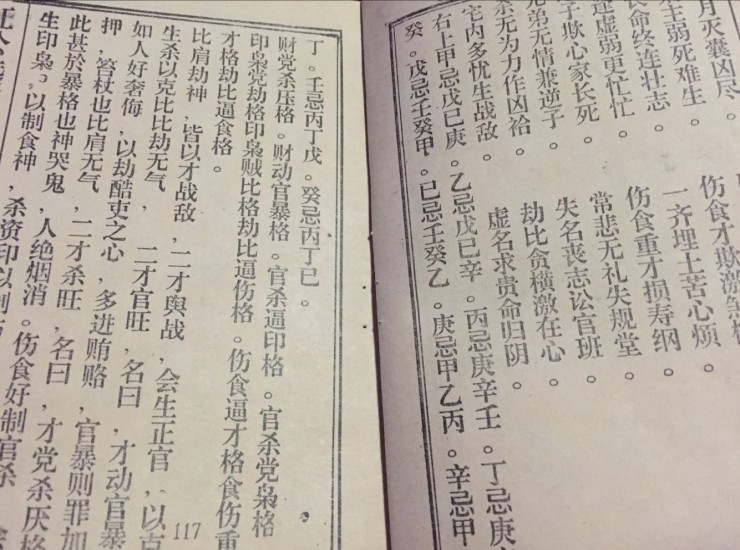 月灭囊凶尽。
伤食才欺激煞
生弱死难生。
一齐埋土苦心烦。
长命终连壮志。
伤食重才损寿纲。
逢虚弱更忙忙。
常悲无礼失规堂。
子欺心家长死。
失名丧志讼官班。
兄弟无情兼逆子。
劫比贪横激在心。
杀无为力作凶袷。
虚名求贵命归阴。
宅内多忧生战敌。
右上甲忌戊己庚。乙忌戊己辛。丙忌庚辛壬。丁忌庚
癸。戊忌壬癸甲。己忌壬癸乙。庚忌甲乙丙。辛忌甲
丁。壬忌丙丁戊。癸忌丙丁己。
财党杀压格。财动官暴格。官杀逼印格。官杀党枭格
印枭党劫格印枭贼比格劫比逼伤格。伤食逼才格食伤重
才格劫比逼食格。
比肩劫神，皆以才战敌，二才舆战，会生正官，以克
生杀以克比比劫无气，二才官旺，名曰，才动官暴
如人好奢侮，以劫酷吏之心，多进贿赂，官暴则罪加
押，笞杖也比肩无气，二才杀旺，名曰，才党杀厌格
此甚於暴格也神哭鬼，人绝烟消。伤食好制官杀
生印枭。以制食神，杀资印以制
117